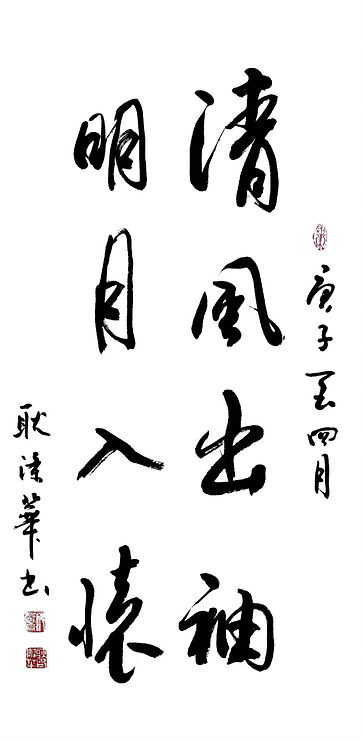 庚子年四月
清風出袖
明月入懷
耿 華书